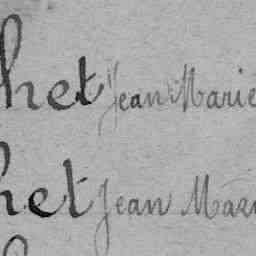 het Jean Marie
het Jean Mari